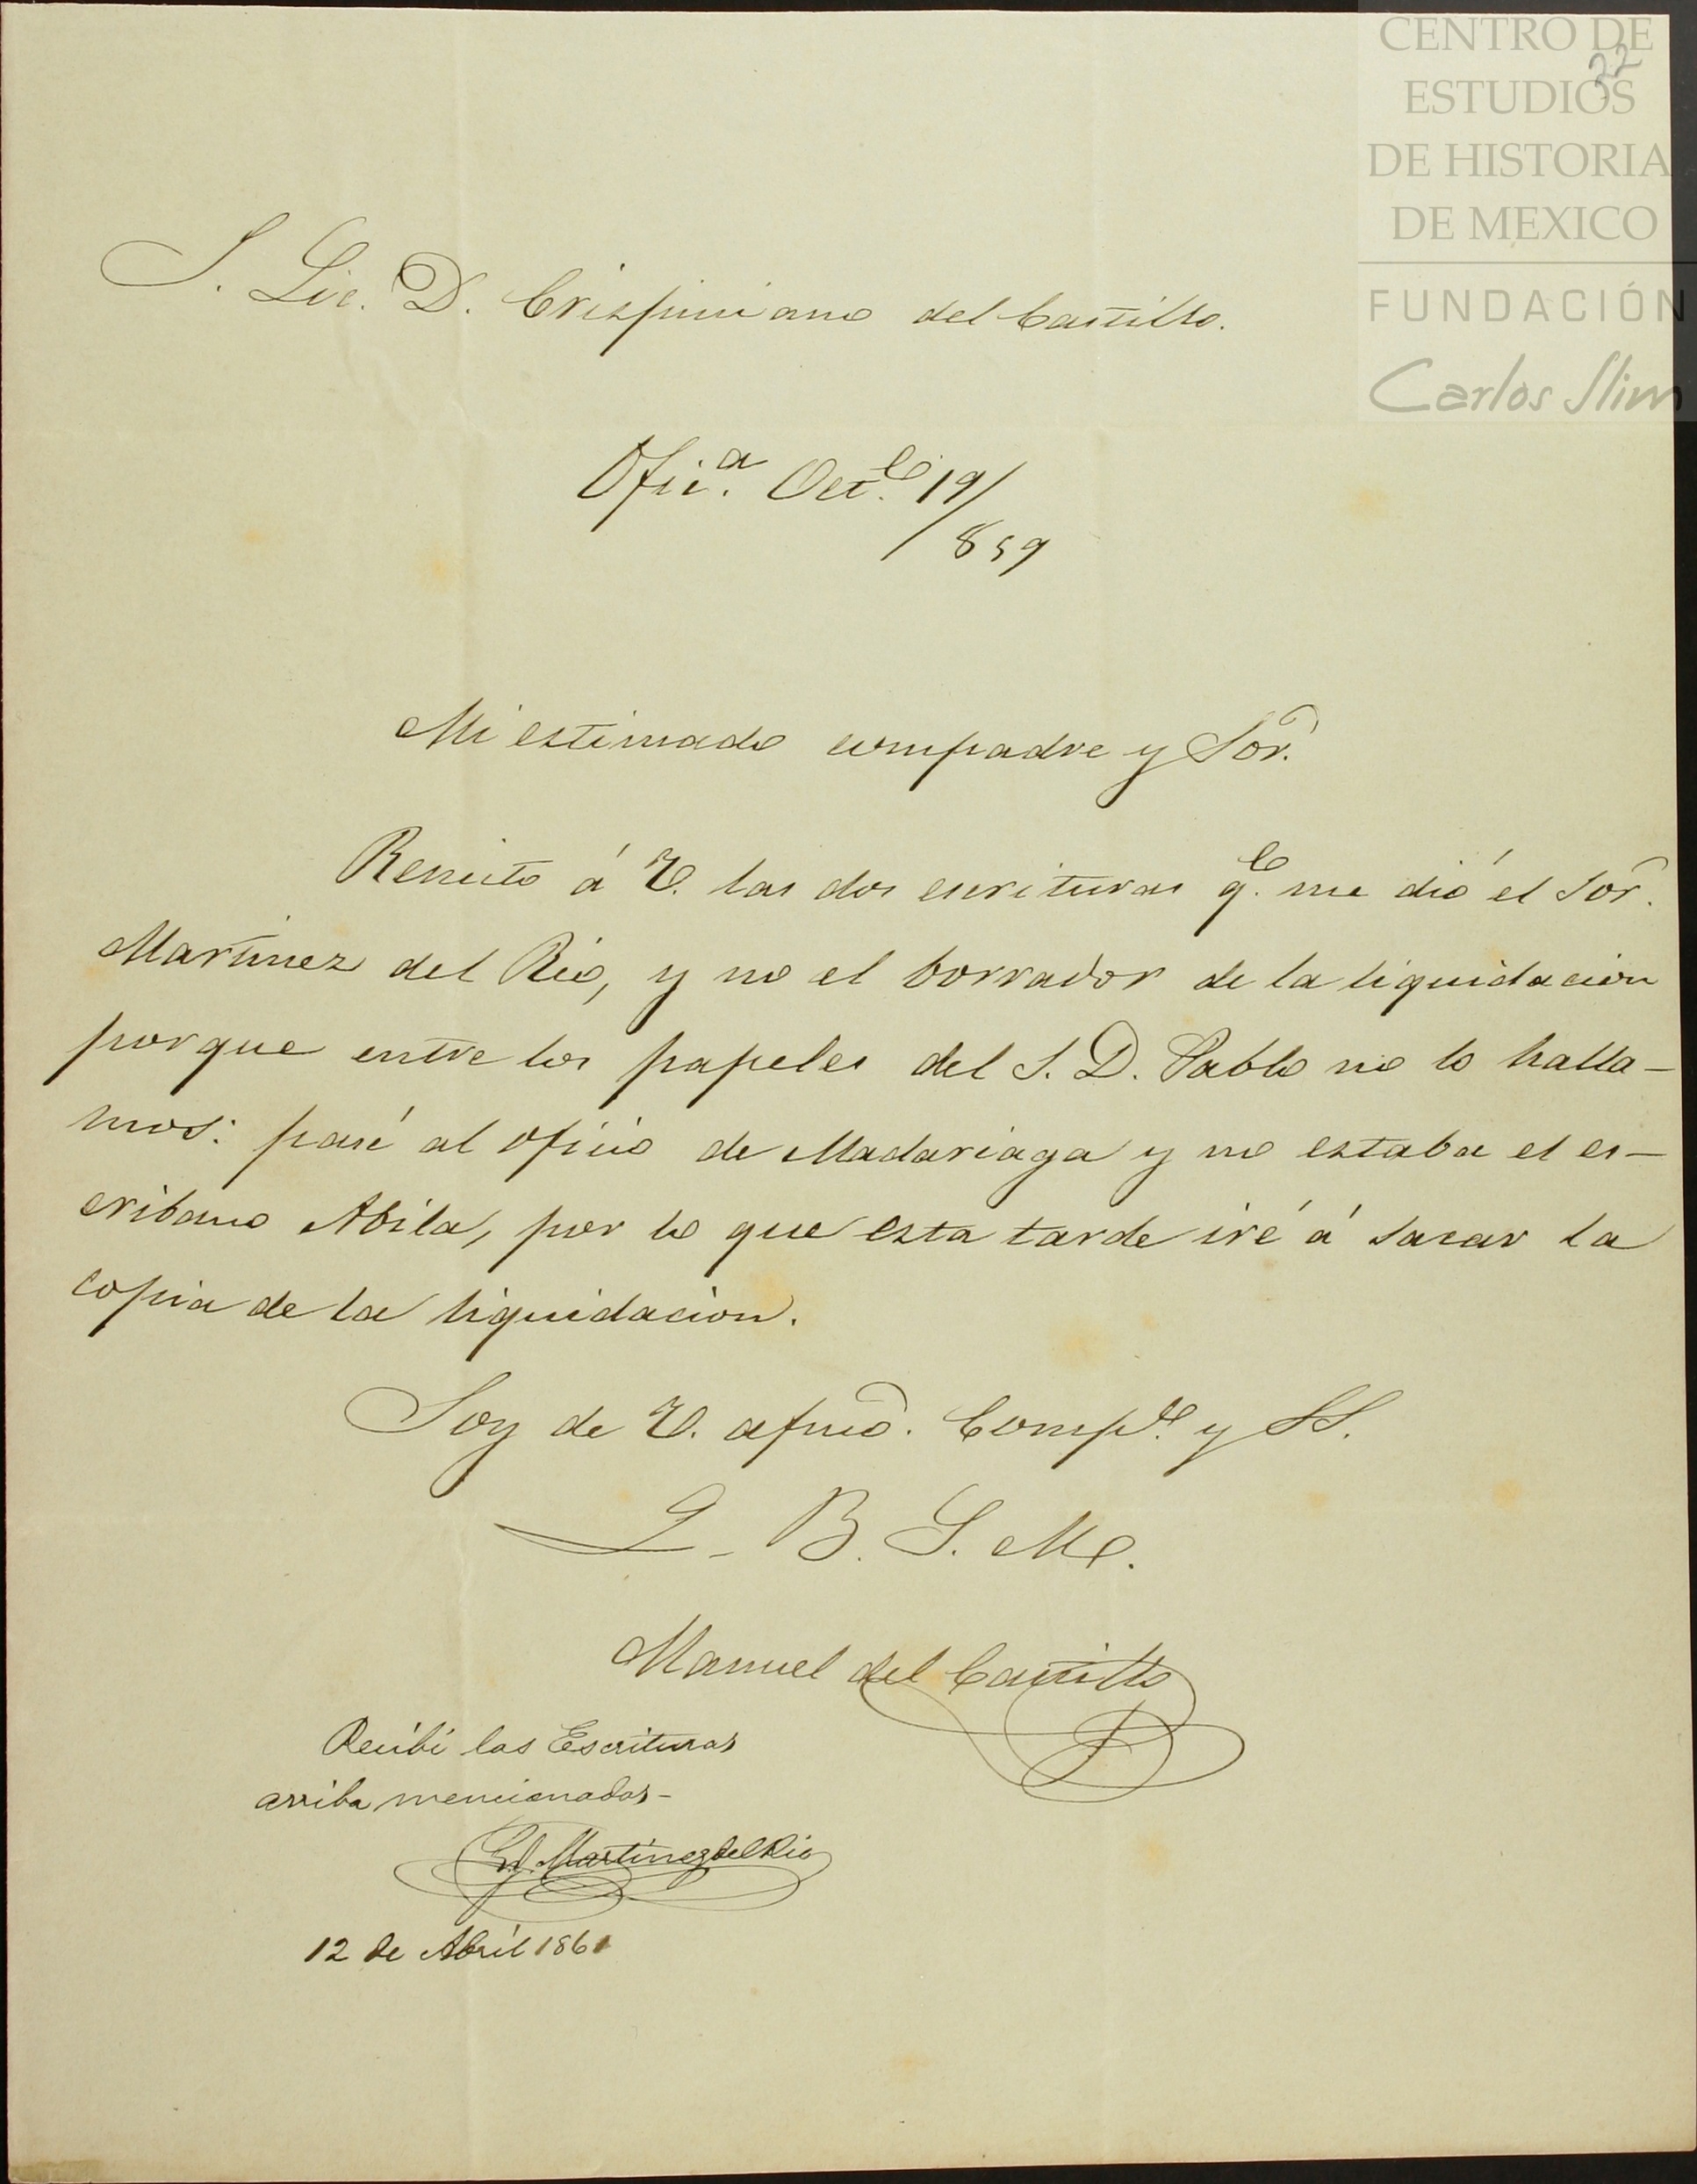 CENTRO DE
ESTUDIOS
DE HISTORIA
DE MEXICO
FUNDACIÓN
Carlos Slim
22
S. Lic. D. Crispiniano del Castillo.
Ofic.ª Oct.e 19/
859
Mi estimado compadre y Sor.
Remito á V. las dos escrituras q.e me dió el Sor.
Martinez del Rio, y no el borrador de la liquidacion
porque entre los papeles del S. D. Pablo no lo halla-
mos: pasé al oficio de Madariaga y no estaba el es-
cribano Abila, por lo que esta tarde iré á sacar la
copia de la liquidacion.
Soy de V. afmo. Comp.e y SS.
Q. B. S. M.
Manuel del Castillo
Recibi las Escrituras
arriba mencionadas-
Martinez del Rio
12 de Abril 1861